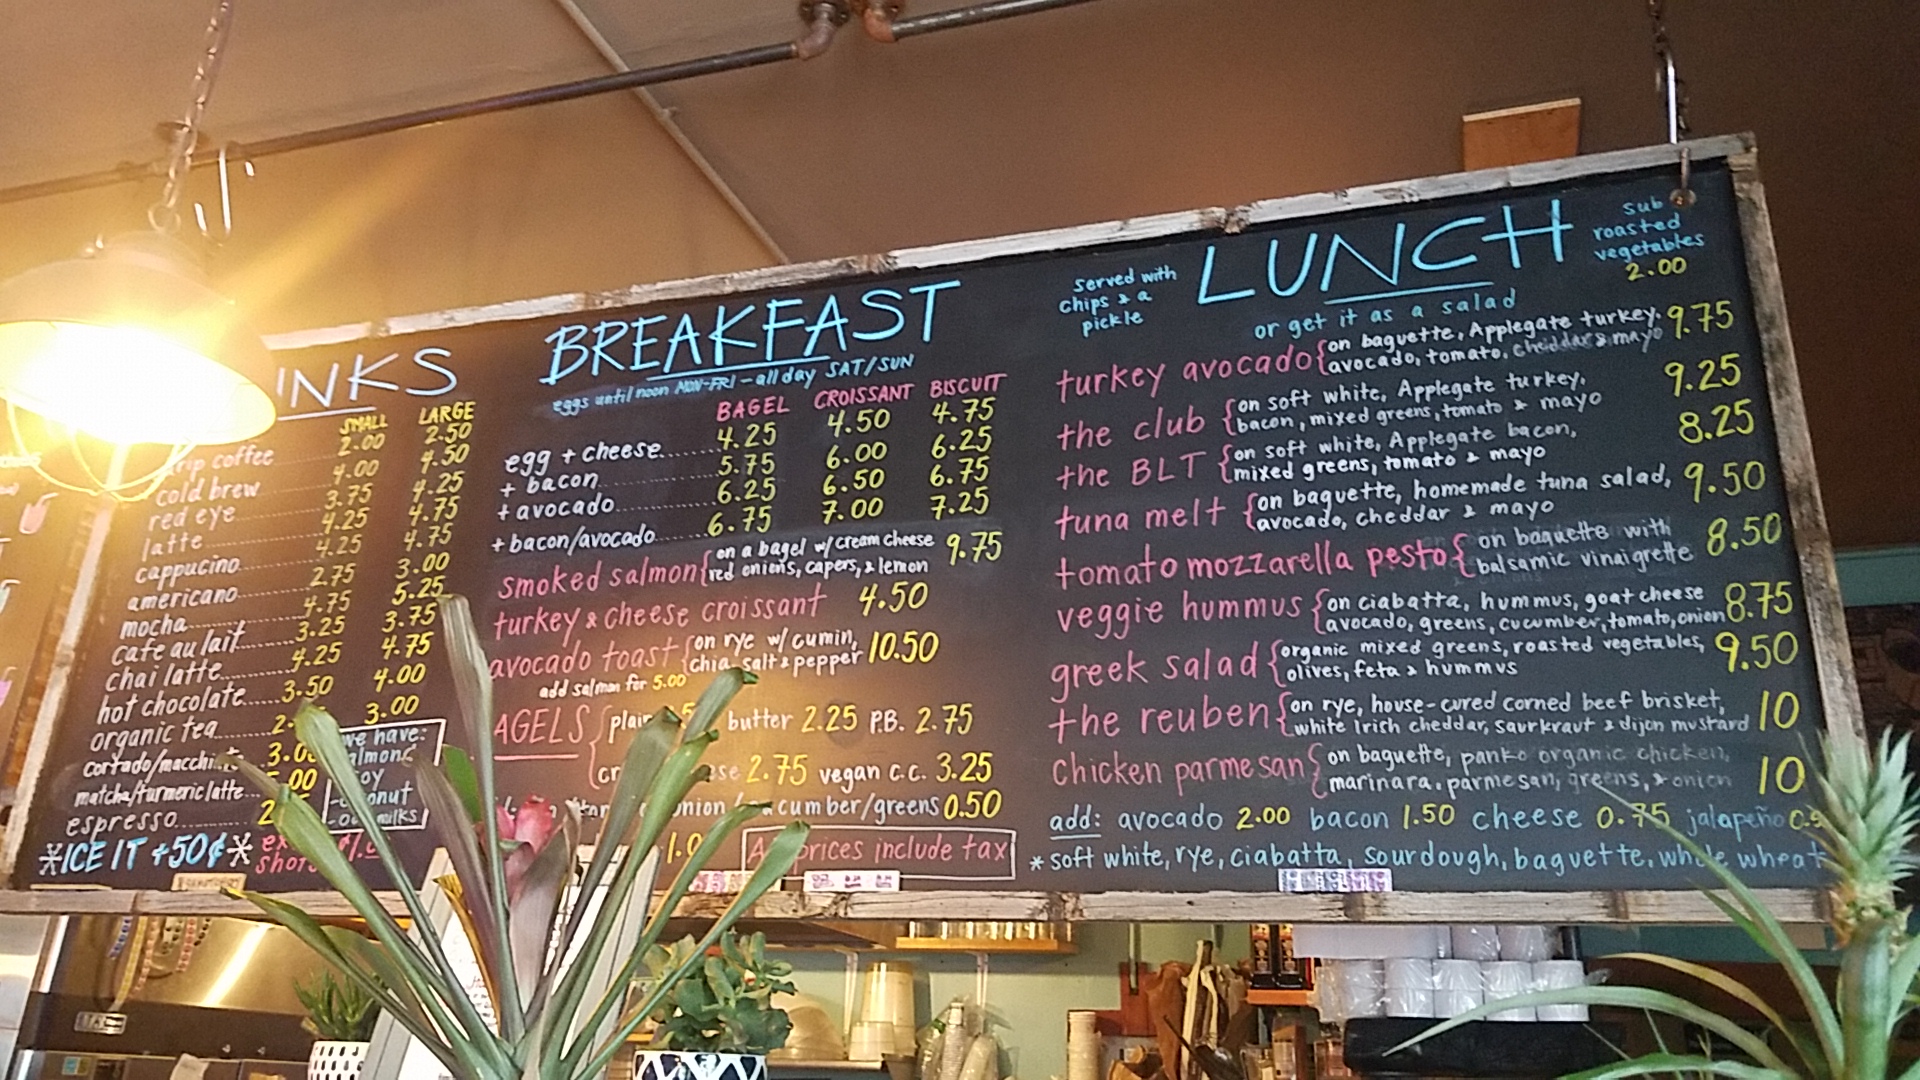 INKS
SMALL LARGE
rip coffee 2.00 2.50
cold brew 4.00 4.50
red eye 3.75 4.25
latte 4.25 4.75
cappucino 4.25 4.75
americano 2.75 3.00
mocha 4.75 5.25
cafe au lait 3.25 3.75
chai latte 4.25 4.75
hot chocolate 3.50 4.00
organic tea 3.00
cortado/macchiato
matcha/turmeric latte
espresso
we have:
almond
soy
milks
*ICE IT +50¢*
BREAKFAST
eggs until noon MON-FRI - all day SAT/SUN
BAGEL CROISSANT BISCUIT
egg + cheese 4.25 4.50 4.75
+ bacon 5.75 6.00 6.25
+ avocado 6.25 6.50 6.75
+ bacon/avocado 6.75 7.00 7.25
smoked salmon { on a bagel w/ cream cheese 9.75
red onions, capers, & lemon
turkey & cheese croissant 4.50
avocado toast { on rye w/ cumin, 10.50
chia, salt & pepper
add salmon for 5.00
AGELS { plain butter 2.25 P.B. 2.75
2.75 vegan c.c. 3.25
cumber/greens 0.50
prices include tax
served with
chips & a
pickle
LUNCH
or get it as a salad
sub
roasted
vegetables
2.00
turkey avocado { on baguette, Applegate turkey, 9.75
avocado, tomato, cheddar & mayo
the club { on soft white, Applegate turkey, 9.25
bacon, mixed greens, tomato & mayo
the BLT { on soft white, Applegate bacon, 8.25
mixed greens, tomato & mayo
tuna melt { on baguette, homemade tuna salad, 9.50
avocado, cheddar & mayo
tomato mozzarella pesto { on baguette with 8.50
balsamic vinaigrette
veggie hummus { on ciabatta, hummus, goat cheese 8.75
avocado, greens, cucumber, tomato, onion
greek salad { organic mixed greens, roasted vegetables, 9.50
olives, feta & hummus
the reuben { on rye, house-cured corned beef brisket, 10
white Irish cheddar, saurkraut & dijon mustard
chicken parmesan { on baguette, panko organic chicken, 10
marinara, parmesan, greens, & onion
add: avocado 2.00 bacon 1.50 cheese 0.75 jalapeño
* soft white, rye, ciabatta, sourdough, baguette, whole wheat